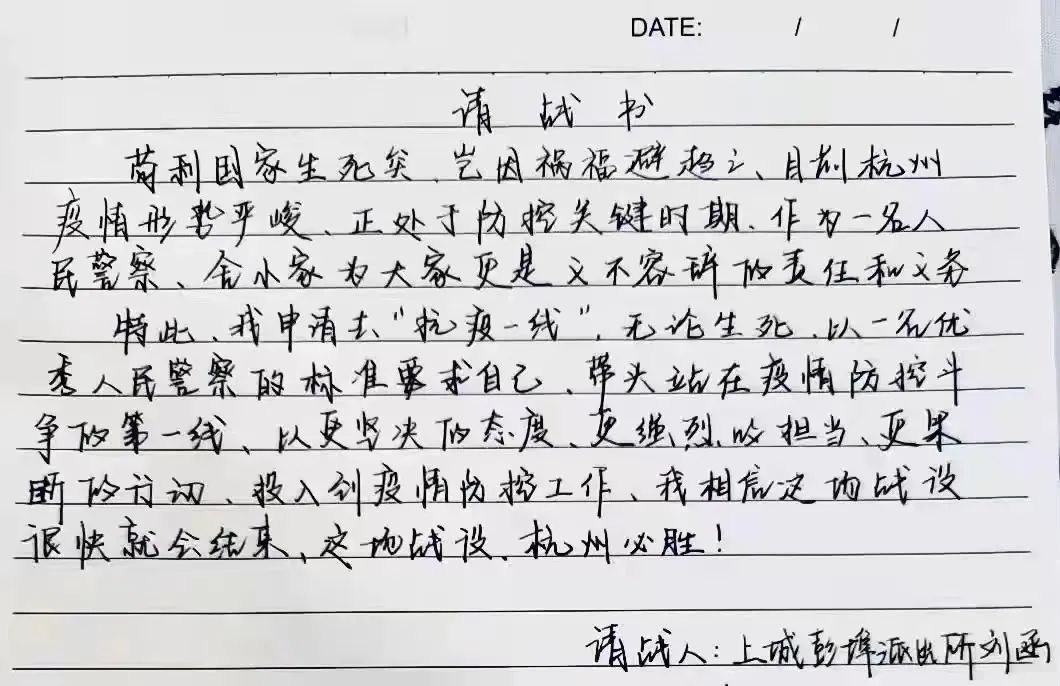 DATE: / /
请战书
苟利国家生死矣、岂因祸福避趋之、目前杭州
疫情形势严峻、正处于防控关键时期、作为一名人
民警察、舍小家为大家更是义不容辞的责任和义务
特此、我申请去“抗疫一线”，无论生死、以一名优
秀人民警察的标准要求自己、带头站在疫情防控斗
争的第一线、以更坚决的态度、更强烈的担当、更果
断的行动、投入到疫情防控工作、我相信这场战役
很快就会结束、这场战役、杭州必胜！
请战人：上城彭埠派出所刘函